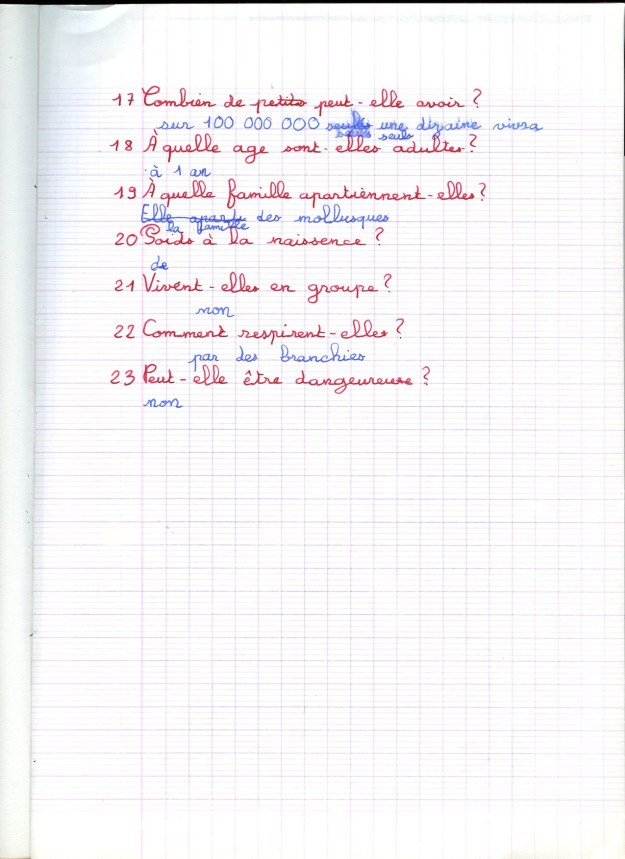 17 Combien de petits peut-elle avoir ?
sur 100 000 000 seuls une dizaine vivra
seuls seuls
18 À quelle age sont-elles adultes ?
à 1 an
19 À quelle famille apartiennent-elles ?
Elle apart des mollusques
la famille
20 Poids à la naissence ?
de
21 Vivent-elles en groupe ?
non
22 Comment respirent-elles ?
par des branchies
23 Peut-elle être dangeureuse ?
non